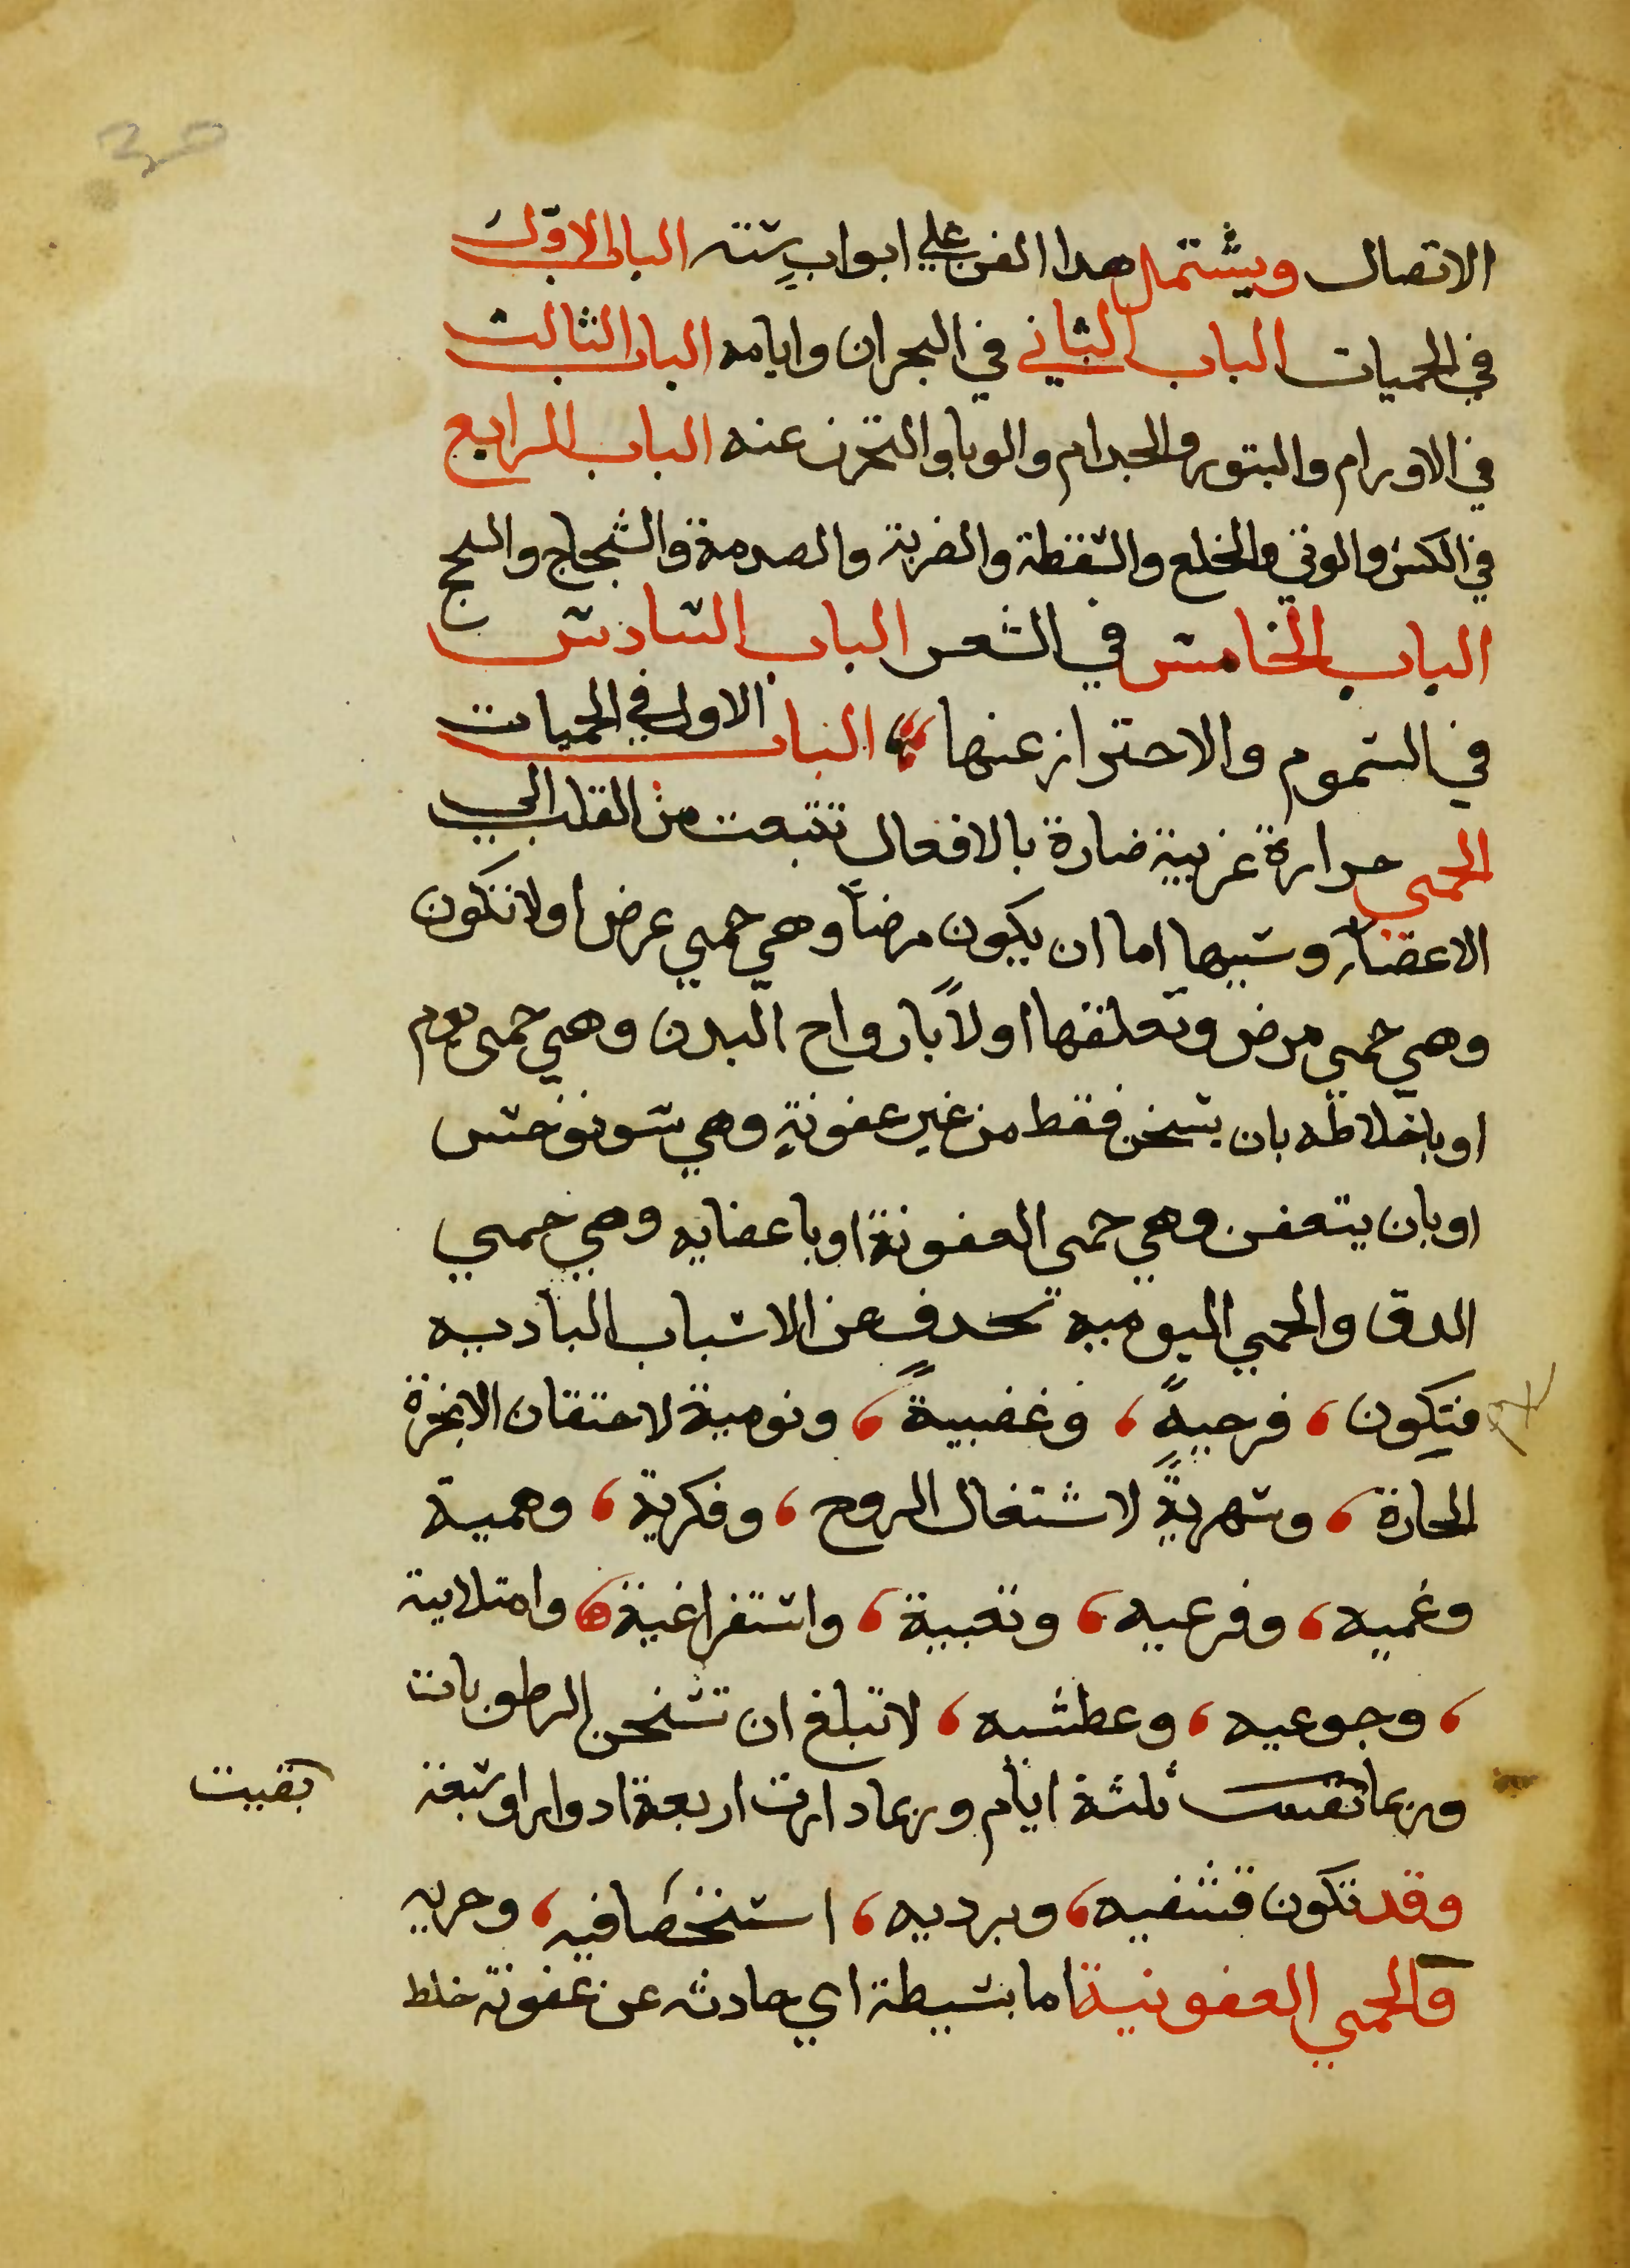 الاتصال ويشتمل هدا الفن علي ابواب ستته الباب الاوّل
في الحميات الباب الثاني في البحران وايامه الباب الثالث
في الاورام والبتور والجدام والوبا والتحرز عنه الباب الرابع
في الكسر والوثي والخلع والسقطة والضربة والصدمة والشجاج والسحج
الباب الخامس في الشعر الباب السادس
في السموم والاحتراز عنها الباب الاول في الحميات
الحمي حرارة غريبة ضارة بالافعال تنبعت من القلب الي
الاعضاء وسببها اما ان يكون مرضاً وهي حمي عرض او لا تكون
وهي حمي مرض وتعلقها اولاً بارواح البدن وهي حمي يوم
او باخلاطه بان يسخن فقط من غير عفونةٍ وهي سونوخس
او بان يتعفن وهي حمي العفونة او باعضايه وهي حمي
الدق والحمي اليوميه تحدث عن الاسباب الباديه
فتكون فرحيةً وغضبيةً ونوميةً لاحتقان الابخرة
الحارة وسهريةً لاشتغال الروح وفكرية وهمية
وغميه وفزعيه وتعبية واستفراغية وامتلاية
وجوعيه وعطشيه لا تبلغ ان تسخن الرطوبات
وربما بقيت ثلثة ايام وربما دارت اربعة ادوار او سبعة
بقيت
وقد تكون قشفيه وبرديه استخصافيه وحريه
والحمي العفونية اما بسيطة اي حادثه عن عفونة خلط